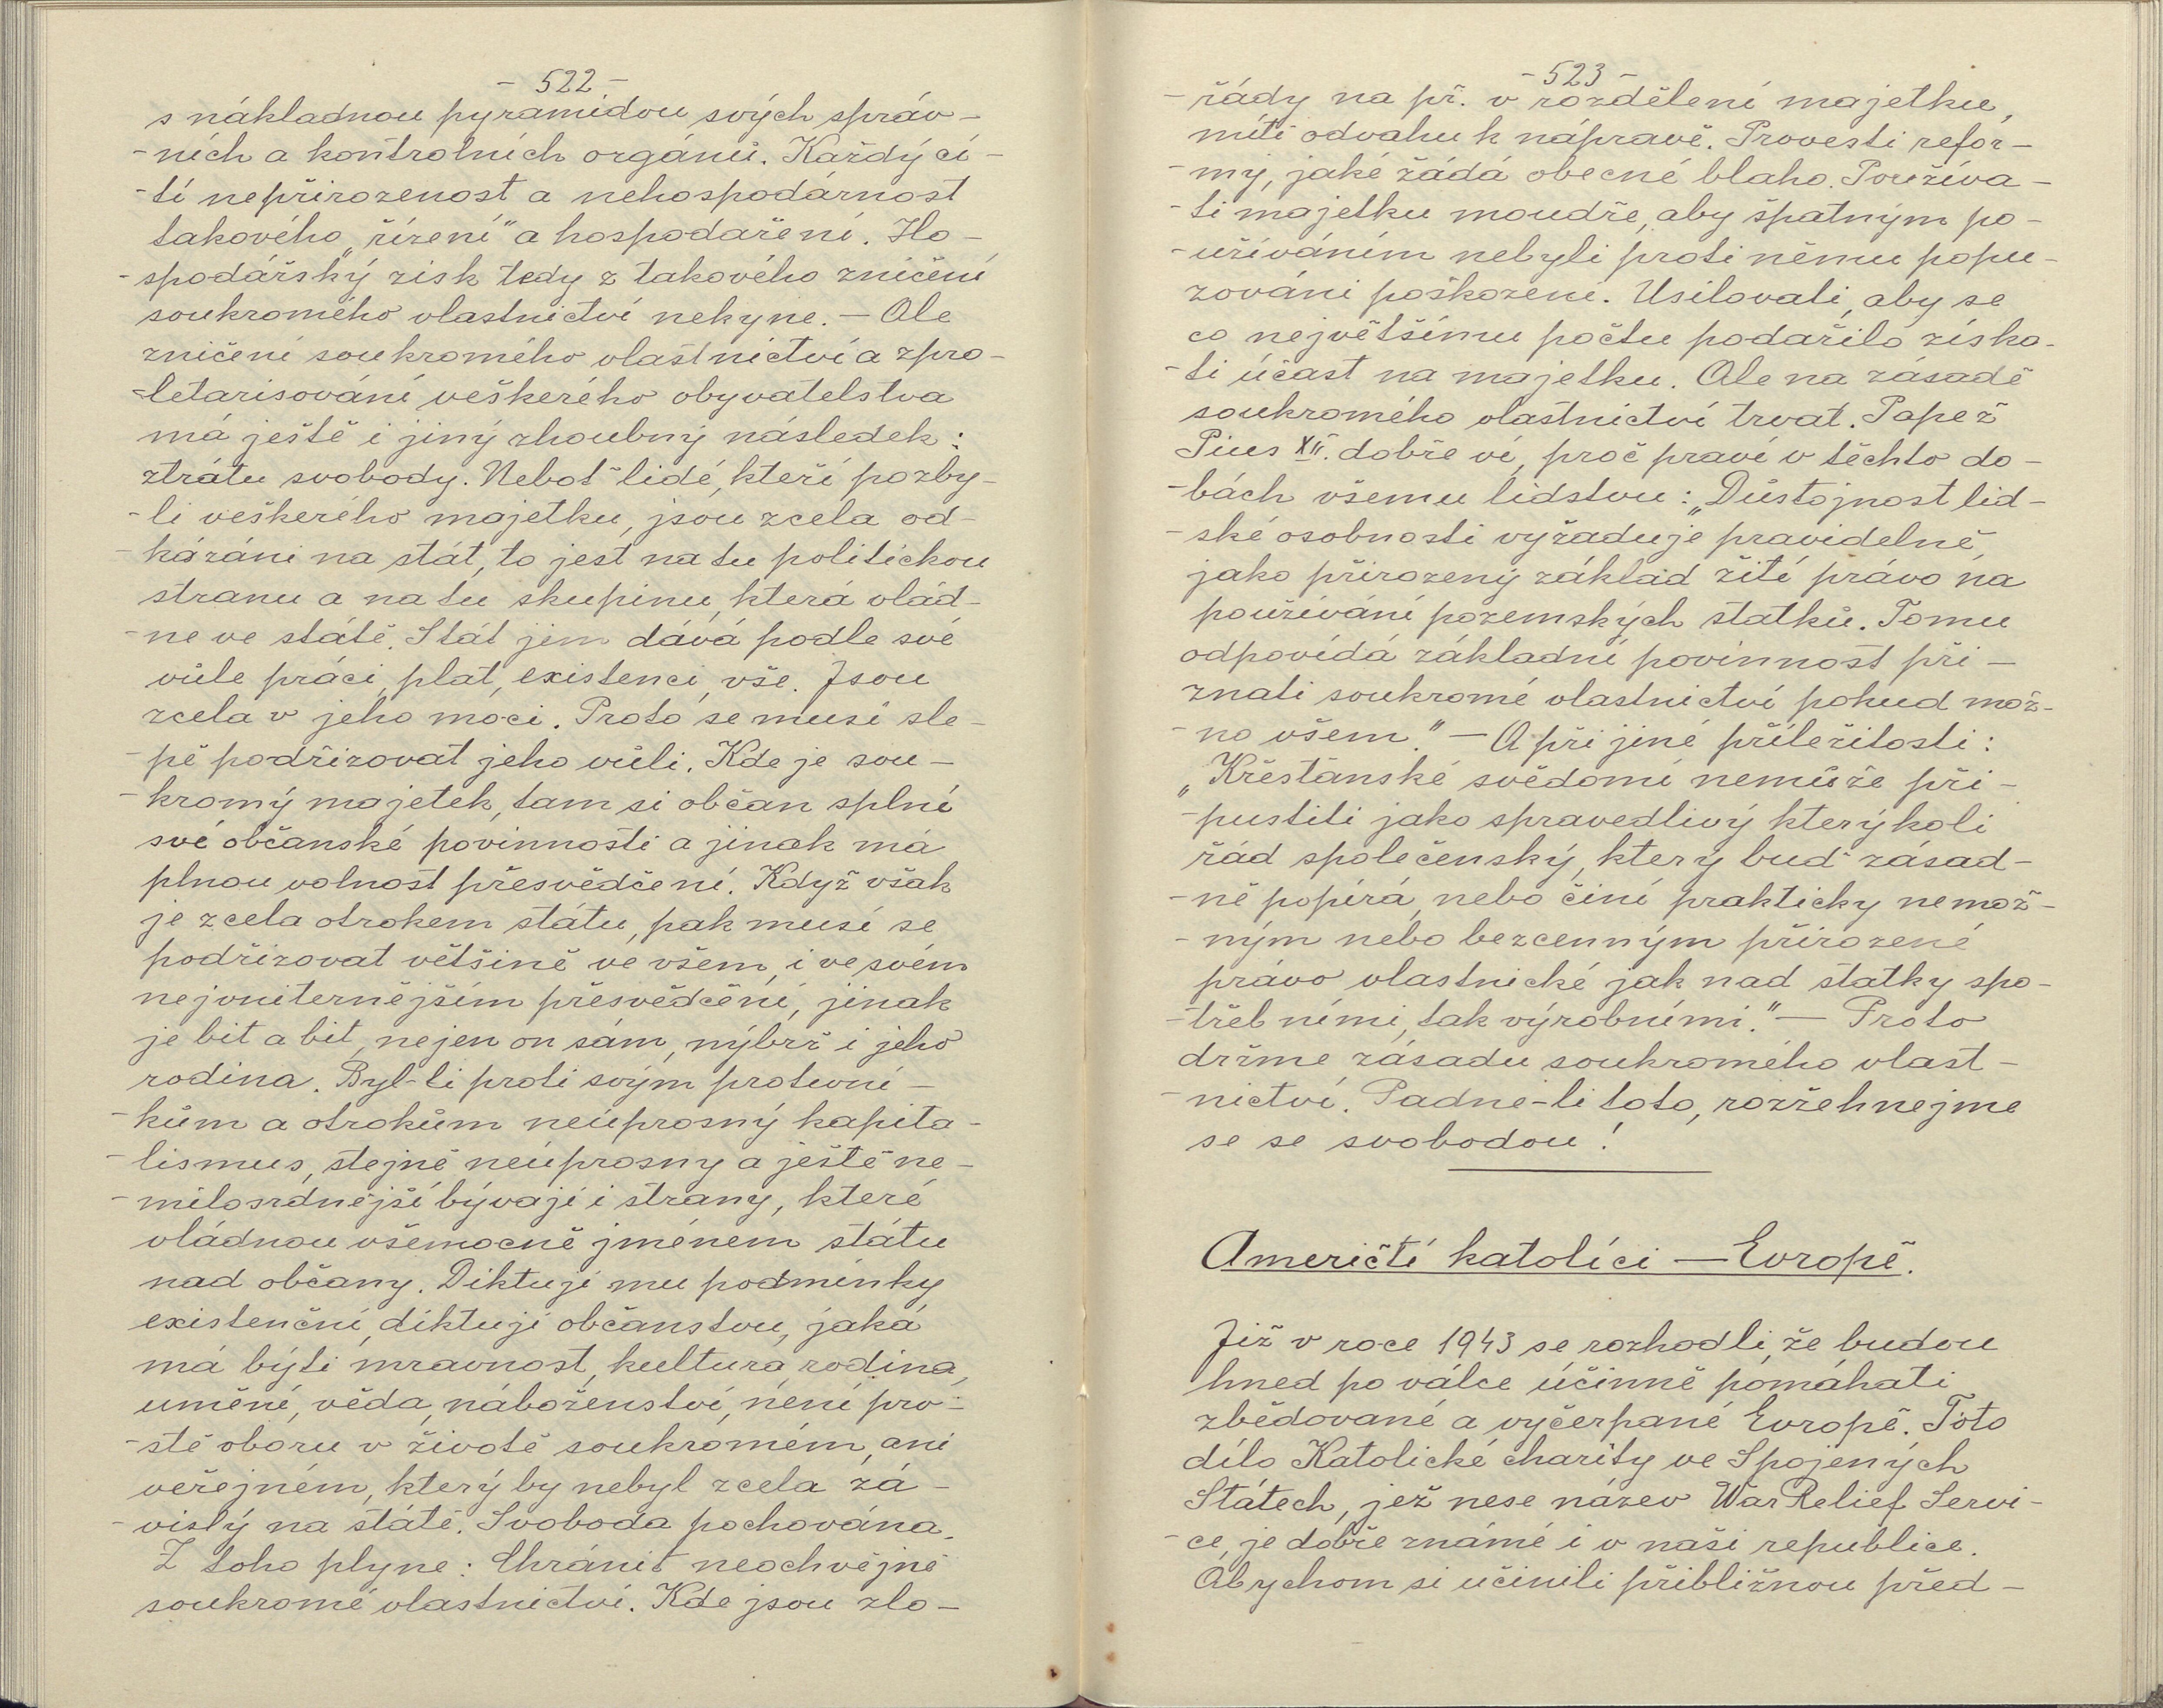 - 522 -
s nákladnou pyramidou svých správ-
-ních a kontrolních orgánů. Každý cí-
-tí nepřirozenost a nehospodárnost
takového „řízení" a hospodaření. Ho-
-spodářský zisk tedy z takového zničení
soukromého vlastnictví nekyne. — Ale
zničení soukromého vlastnictví a zpro-
-letarisování veškerého obyvatelstva
má ještě i jiný zhoubný následek:
ztrátu svobody. Neboť lidé, kteří pozby-
-li veškerého majetku, jsou zcela od-
-kázáni na stát, to jest na tu politickou
stranu a na tu skupinu, která vlád-
-ne ve státě. Stát jim dává podle své
vůle práci, plat, existenci, vše. Jsou
zcela v jeho moci. Proto se musí sle-
-pě podřizovat jeho vůli. Kde je sou-
-kromý majetek, tam si občan splní
své občanské povinnosti a jinak má
plnou volnost přesvědčení. Když však
je zcela otrokem státu, pak musí se
podřizovat většině ve všem, i ve svém
nejvniternějším přesvědčení, jinak
je bit a bit, nejen on sám, nýbrž i jeho
rodina. Byl-li proti svým protivní-
-kům a otrokům neúprosný kapita-
-lismus, stejně neúprosny a ještě ne-
-milosrdnější bývají i strany, které
vládnou všemocně jménem státu
nad občany. Diktují mu podmínky
existenční, diktují občanstvu, jaká
má býti mravnost, kultura, rodina,
umění, věda, náboženství, není pro-
-stě oboru v životě soukromém, ani
veřejném, který by nebyl zcela zá-
-vislý na státě. Svoboda pochována.
Z toho plyne: Chránit neochvějně
soukromé vlastnictví. Kde jsou zlo-
- 523 -
-řády na př. v rozdělení majetku,
míti odvahu k nápravě. Provesti refor-
-my, jaké žádá obecné blaho. Používa-
-ti majetku moudře, aby špatným po-
-užíváním nebyli proti němu popu-
zováni poškození. Usilovati, aby se
co největšímu počtu podařilo získa-
-ti účast na majetku. Ale na zásadě
soukromého vlastnictví trvat. Papež
Pius XII. dobře ví, proč praví v těchto do-
-bách všemu lidstvu: „Důstojnost lid-
-ské osobnosti vyžaduje pravidelně,
jako přirozený základ žití právo na
používání pozemských statků. Tomu
odpovídá základní povinnost při-
znati soukromé vlastnictví pokud mož-
-no všem." — A při jiné příležitosti:
„Křesťanské svědomí nemůže při-
-pustiti jako spravedlivý kterýkoli
řád společenský, který buď zásad-
-ně popírá, nebo činí prakticky nemož-
-ným nebo bezcenným přirozené
právo vlastnické jak nad statky spo-
-třebními, tak výrobními." — Proto
držme zásadu soukromého vlast-
-nictví. Padne-li toto, rozžehnejme
se se svobodou!
Američtí katolíci — Evropě.
Již v roce 1943 se rozhodli, že budou
hned po válce účinně pomáhati
zbědované a vyčerpané Evropě. Toto
dílo Katolické charity ve Spojených
Státech, jež nese název War Relief Servi-
-ce, je dobře známé i v naši republice.
Abychom si učinili přibližnou před-